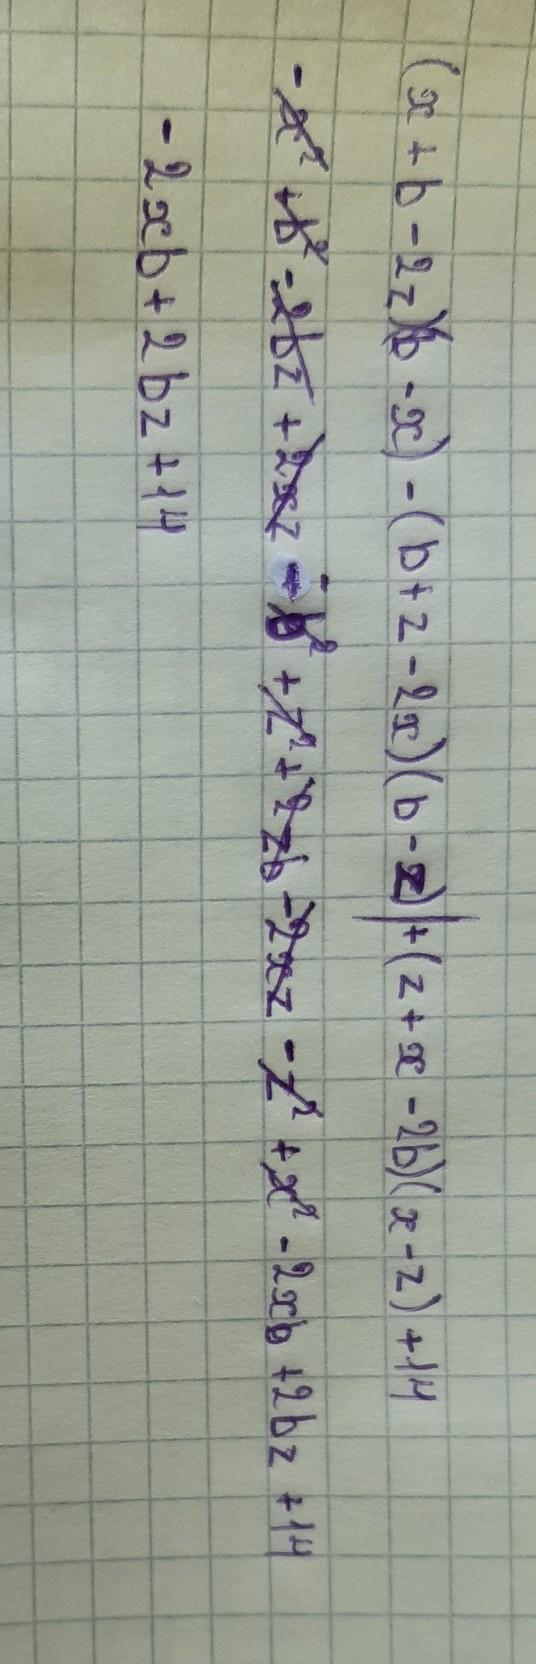 (x + b - 2z)(b - x) - (b + z - 2x)(b - z) + (z + x - 2b)(x - z) + 14
- x² + b² - 2bz + 2xz - b² + z² + 2zb - 2xz - z² + x² - 2xb + 2bz + 14
- 2xb + 2bz + 14